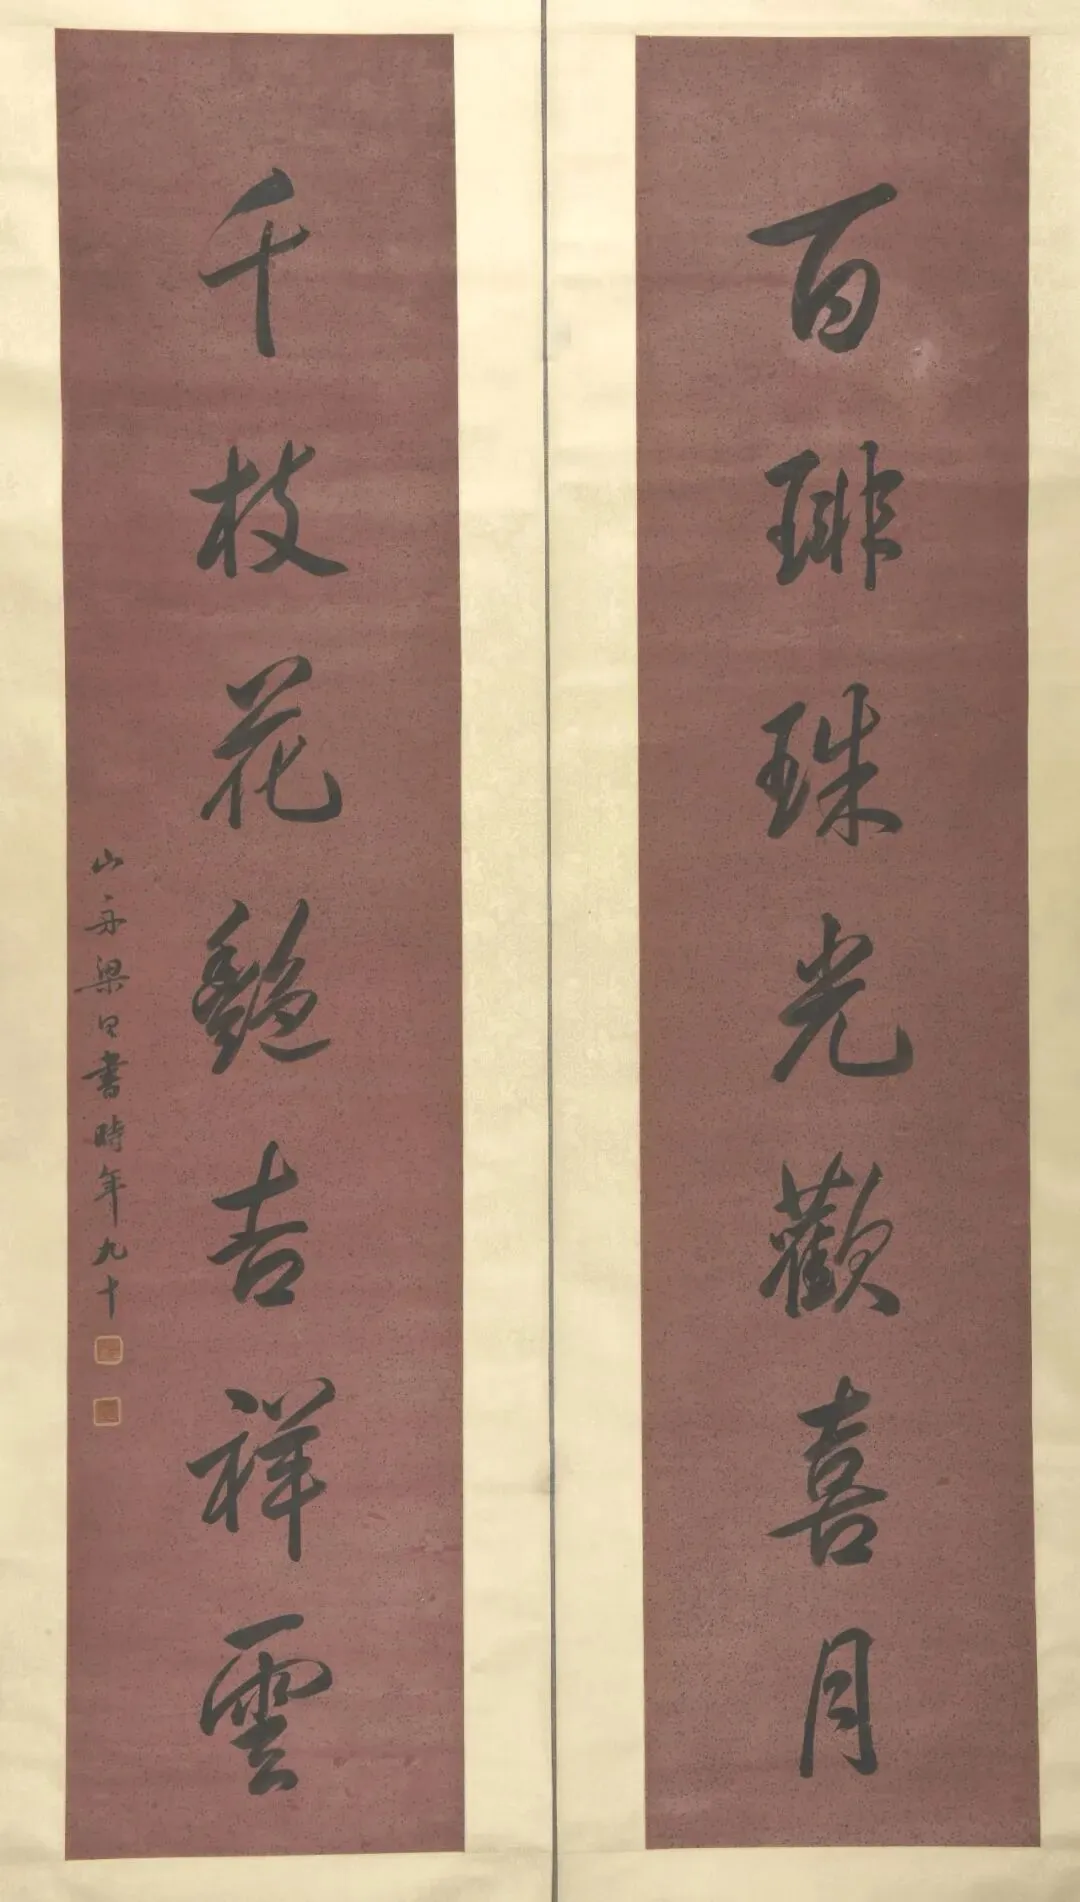 百琲珠光歡喜月
千枝花豔吉祥雲
山舟梁同書時年九十